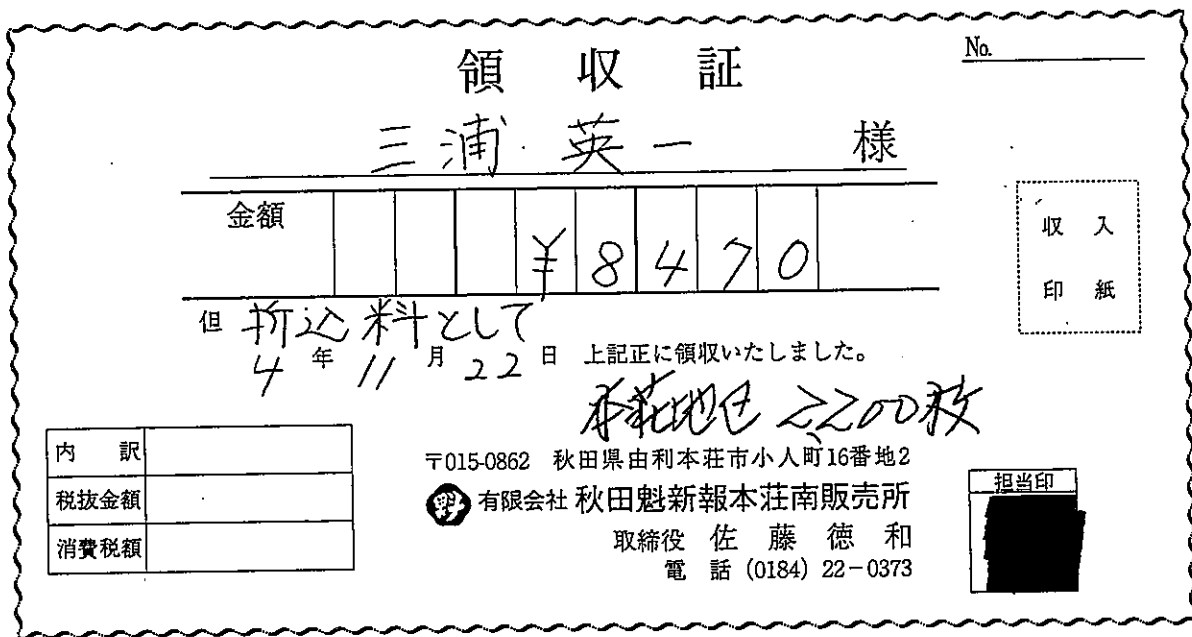 領収証
No.
三浦 英一 様
金額 ¥8470
収入
印紙
但 折込料として
4年11月22日 上記正に領収いたしました。
本荘地区 2,200枚
内訳
税抜金額
消費税額
〒015-0862 秋田県由利本荘市小人町16番地2
有限会社 秋田魁新報本荘南販売所
取締役 佐藤徳和
電話 (0184) 22-0373
担当印